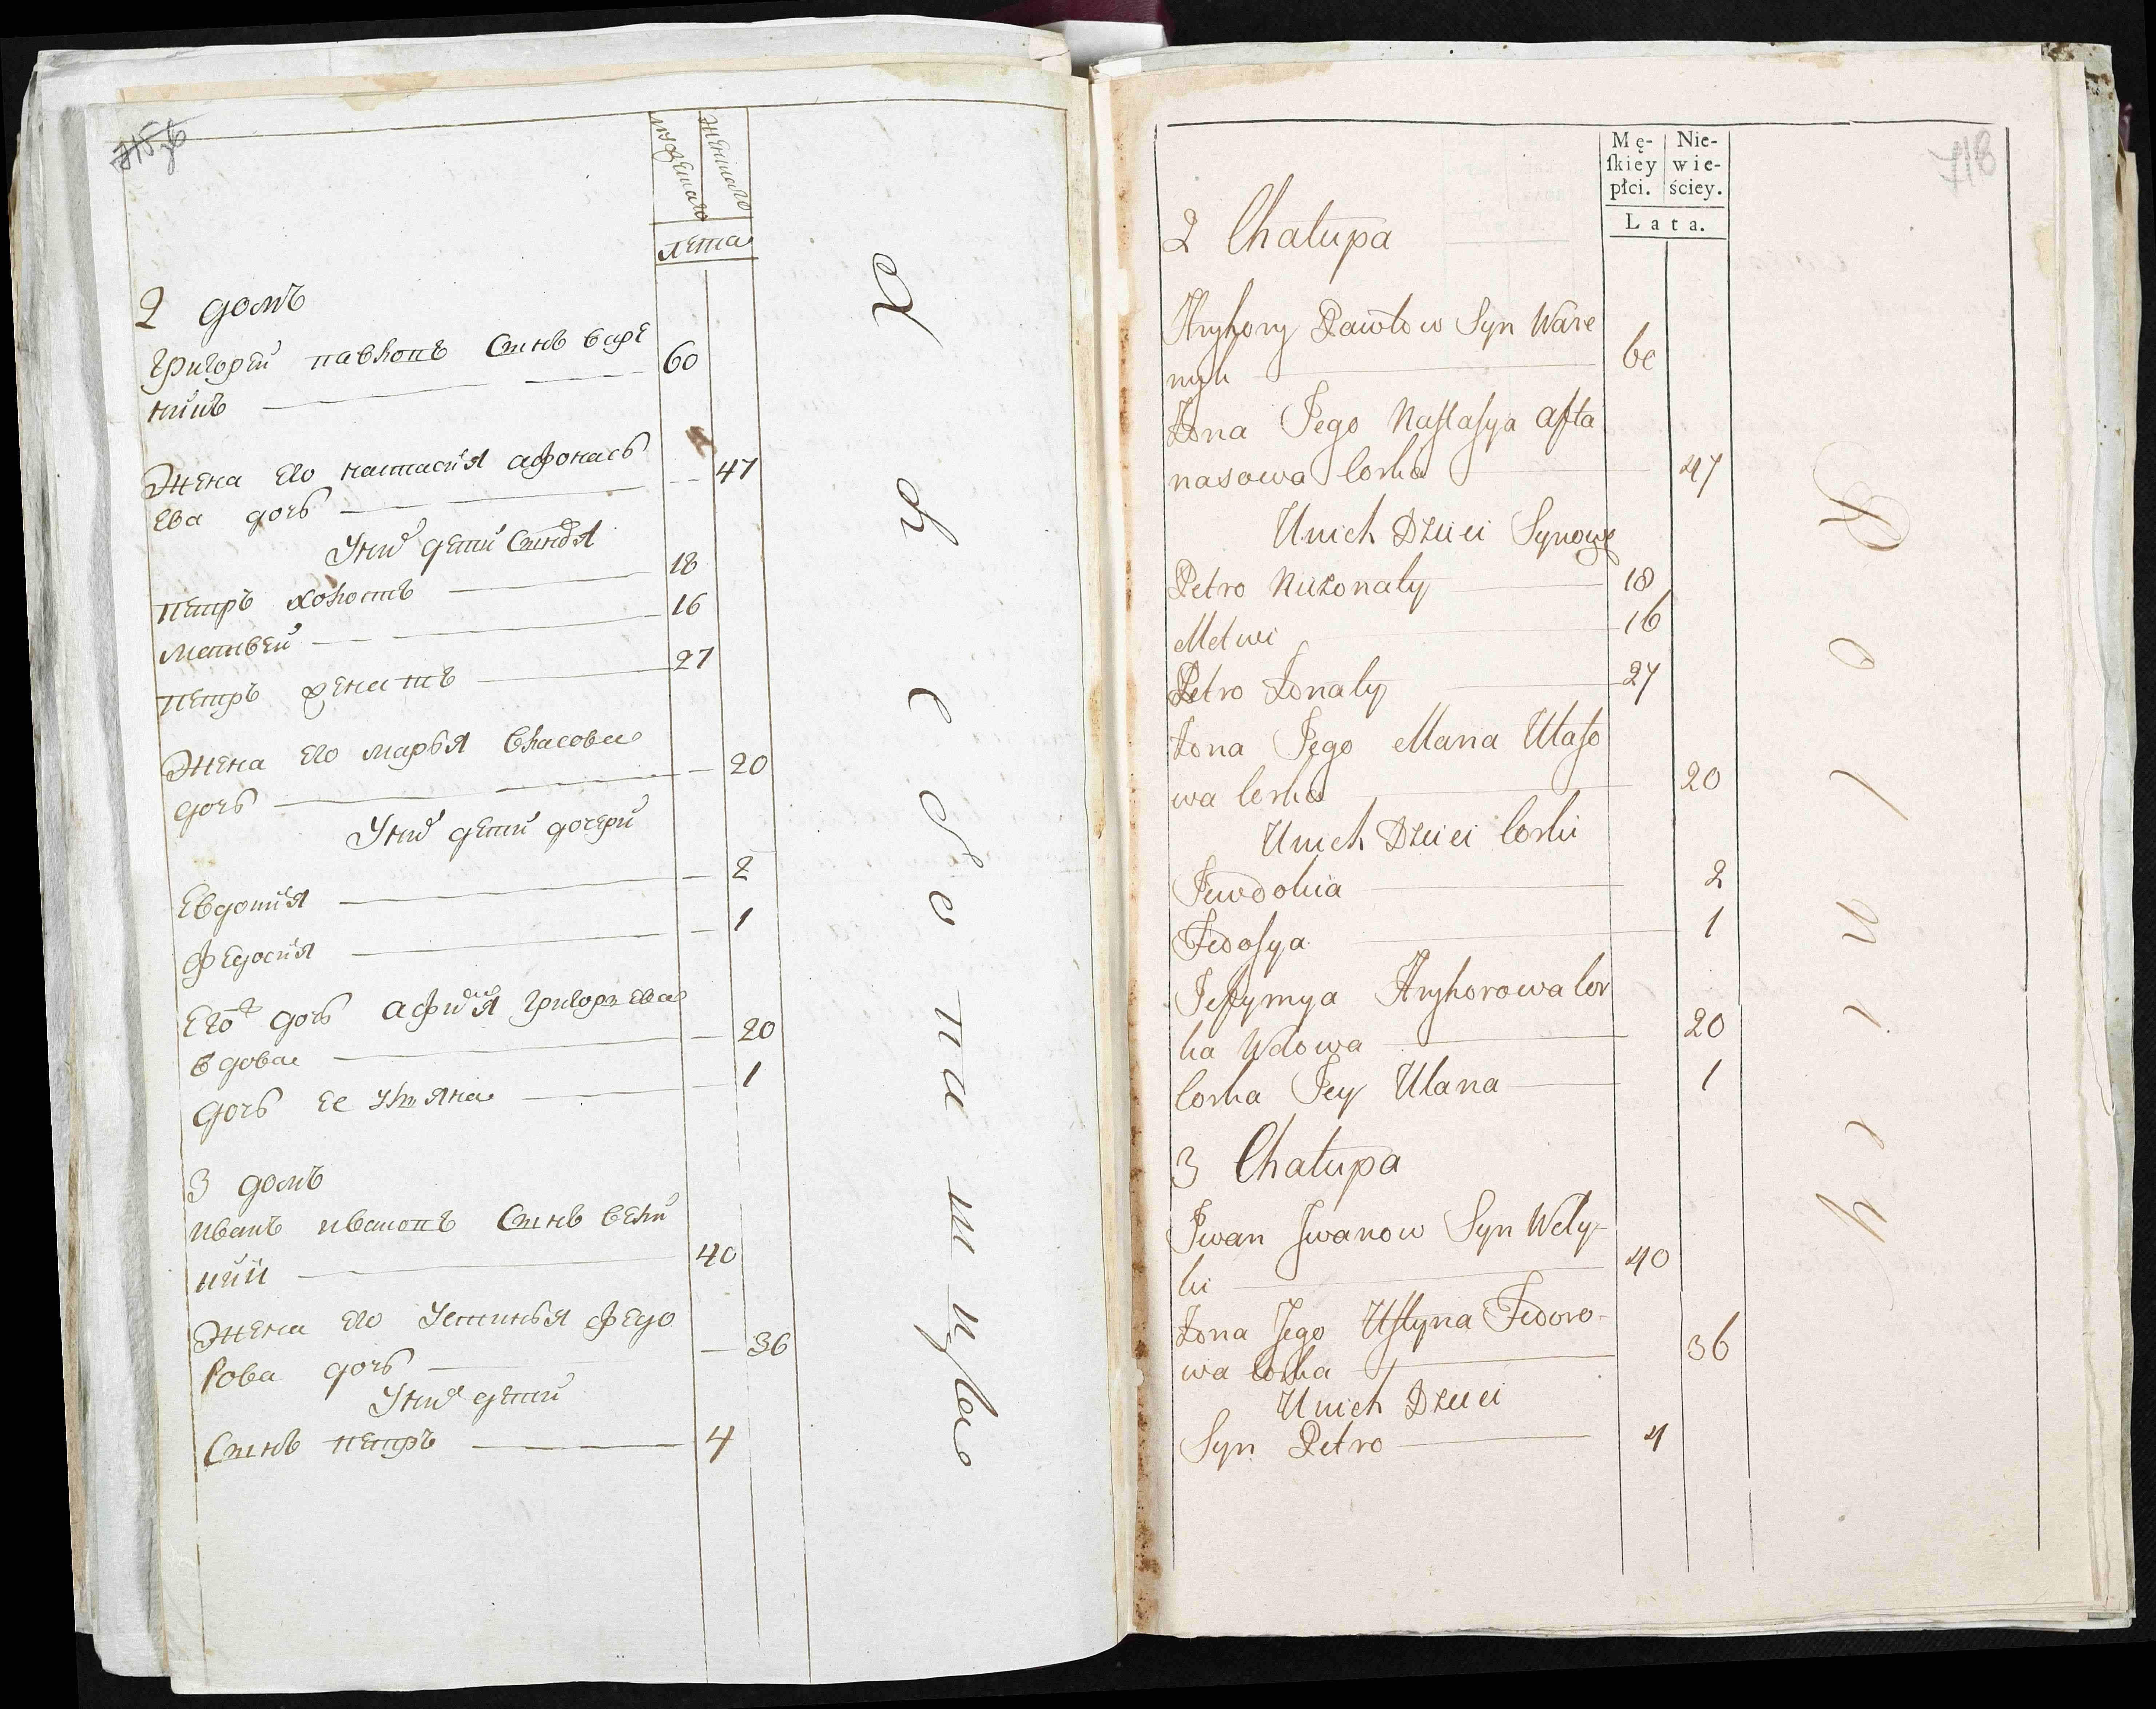 мужеска
женска
лета
2 домъ
Григорей павловъ Сынъ варе
никъ 60
Жена его настасия афонась
ева дочь 47
У них дети Сыновя
петръ холостъ 18
матвей 16
петръ женатъ 27
Жена его марья власова
дочь 20
У них дети дочери
Евдокия 2
Федосия 1
Его дочь афимия григорьева
вдова 20
дочь ее ульяна 1
3 домъ
иванъ ивановъ Сынъ вели
кий 40
Жена его Устинья федо
рова дочь 36
У них дети
Сынъ петръ 4
718
Mę-
ſkiey
płci.
Nie-
wie-
ściey.
Lata.
2 Chałupa
Hryhory Pawłow Syn Ware
nyk 60
Żona Jego Naſtaſya Afta
nasowa Corka 47
Unich Dzieci Synowe
Petro Nieżonaty 18
Matwi 16
Petro Żonaty 27
Żona Jego Maria Ułaſo
wa Corka 20
Unich Dzieci Corki
Jewdokia 2
Fedoſya 1
Jefymya Hryhorowa Cor
ka Wdowa 20
Corka Jey Ulana 1
3 Chałupa
Jwan Jwanow Syn Wely-
ki 40
Żona Jego Uſtyna Fedoro-
wa Corka 36
Unich Dzieci
Syn Petro 4